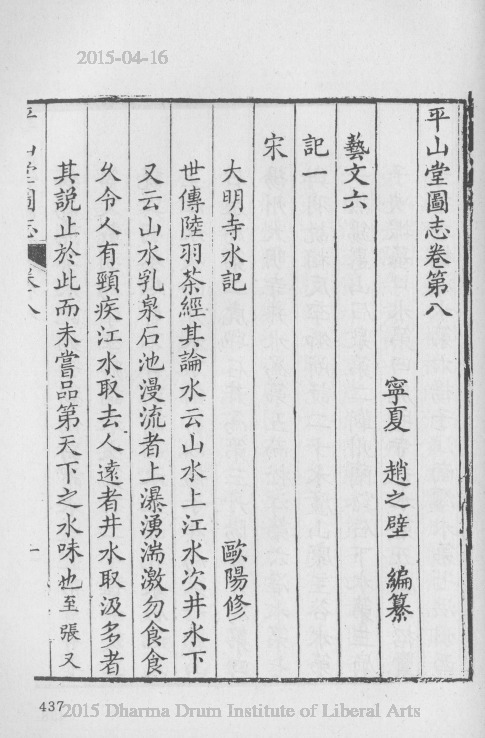 2015-04-16
平山堂圖志卷第八
寧夏 趙之壁 編纂
藝文六
記一
宋
大明寺水記 歐陽修
世傳陸羽茶經其論水云山水上江水次井水下
又云山水乳泉石池漫流者上瀑湧湍激勿食食
久令人有頸疾江水取去人遠者井水取汲多者
其說止於此而未嘗品第天下之水味也至張又
平山堂圖志 卷八 一
437
2015 Dharma Drum Institute of Liberal Arts